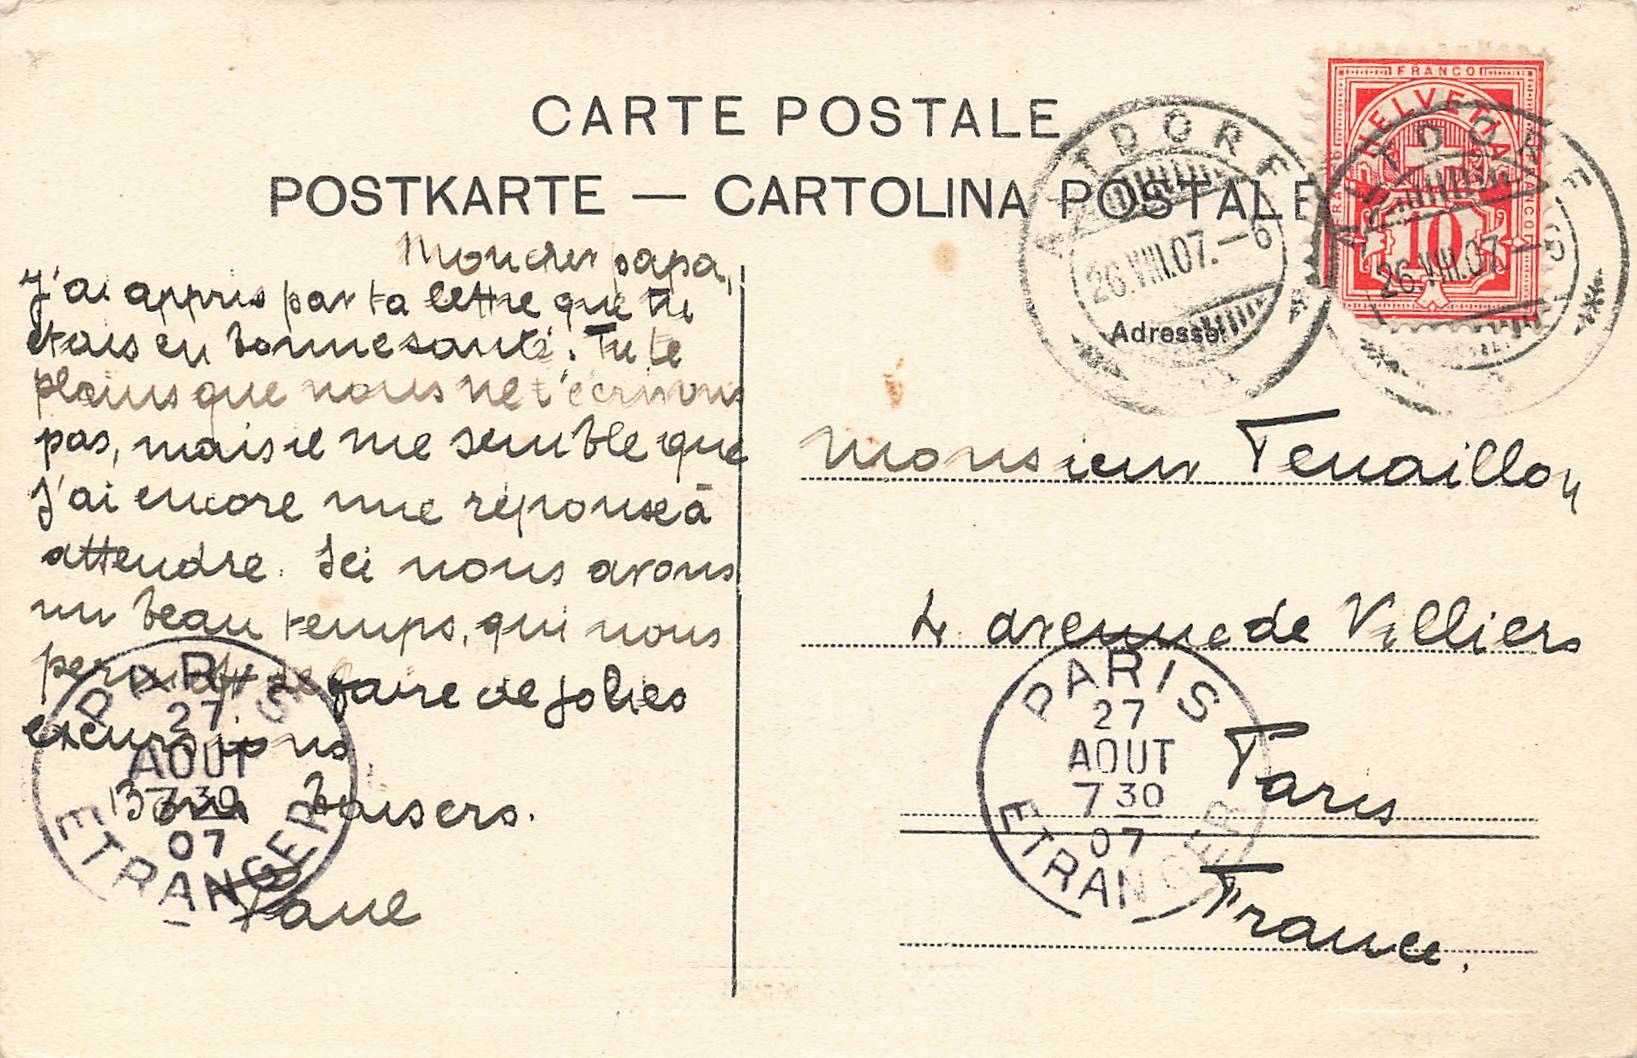 CARTE POSTALE
POSTKARTE — CARTOLINA POSTALE
Mon cher papa,
J'ai appris par ta lettre que tu
etais en bonne santé. Tu te
plains que nous ne t'écrivons
pas, mais il me semble que
j'ai encore une réponse à
attendre. Ici nous avons
un beau temps, qui nous
permet de faire de jolies
excursions
Bons baisers.
Paul
FRANCO
HELVETIA
FRANCO
FRANCO
10
ALTDORF
26.VIII.07.–6
ALTDORF
26.VIII.07.–6
Adresse:
Monsieur Tenaillon
4 avenue de Villiers
Paris
France.
PARIS
27
AOUT
7 30
07
ETRANGER
PARIS
27
AOUT
7 30
07
ETRANGER